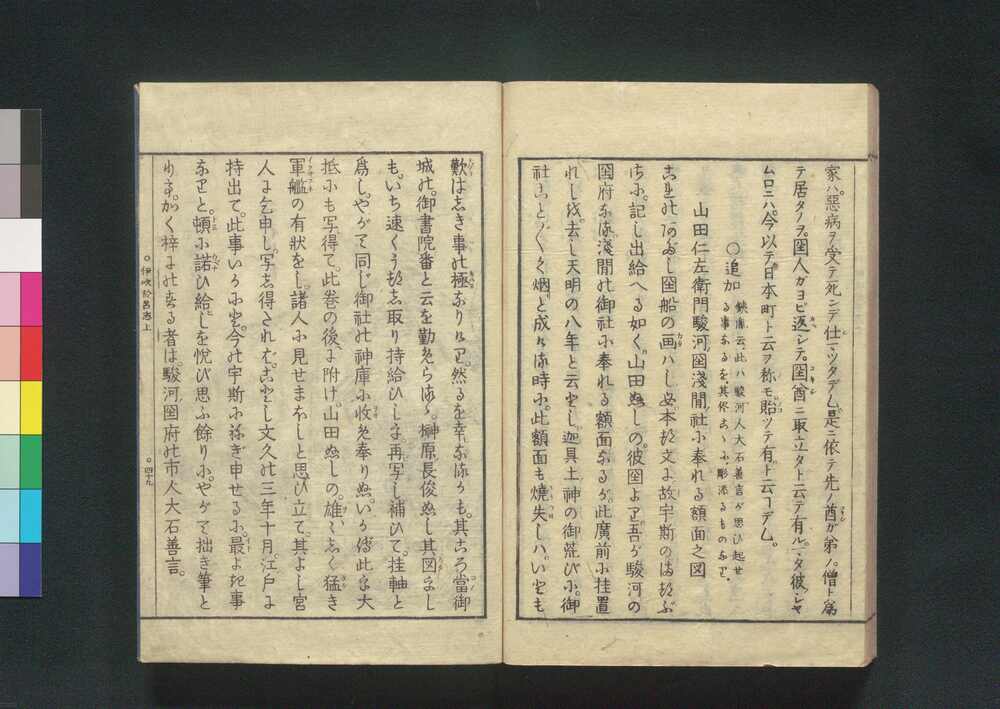 家ハ惡病ヲ受テ死ンデ仕マツタデム是ニ依テ先ノ酋ガ弟ノ僧ト爲
テ居タノヲ国人ガヨビ返シテ国酋ニ取立タト云テ有ルマタ彼シヤ
ムロニハ今以テ日本町ト云ヲ称モ貽ツテ有ト云コデム
〇追加
鉄胤云此ハ駿河人大石善言が思ひ起せ
る事なるを其侭こゝに彫添るものなり
山田仁左衛門駿河国淺間社に奉れる額面之図
これのかみし国船の画ハし必本文に故宇斯の
ちに記し出給へる如く山田ぬしの彼国より吾が駿河の
国府なる淺間の御社に奉れる額面なるが此廣前に挂置
れしを去し天明の八年と云とし迦具土神の御荒びに御
社こと〴〵く烟と成れる時に此額面も焼失しハいとも
歎はしき事の極なりけり然るを幸なるかも其ころ當御
城の御書院番と云を勤めらる榊原長俊ぬし其図まし
もいち速くうつし取り持給ひしを再写し補ひて挂軸と
爲しやがて同じ御社の神庫に收め奉りぬいかで此をた
抵にも写得て此巻の後に附け山田ぬしの雄々しく猛き
軍艦の有状をし諸人に見せまほしと思ひ立て其よし宮
人に乞申し写し得されむことし文久の三年十月江戸に
持出て此事いかにと今の宇斯にねぎ申せるに最よき事
なりと頓に諾ひ給しを悦び思ふ餘りにやがて拙き筆と
りてかく梓にのする者は駿河国府の市人大石善言
〇伊吹於呂志上
〇四十九